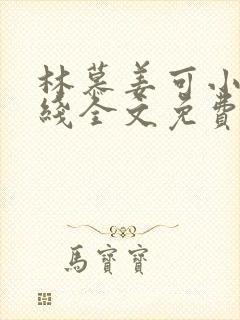 林慕姜可小
綫全文免費
馬寶寶